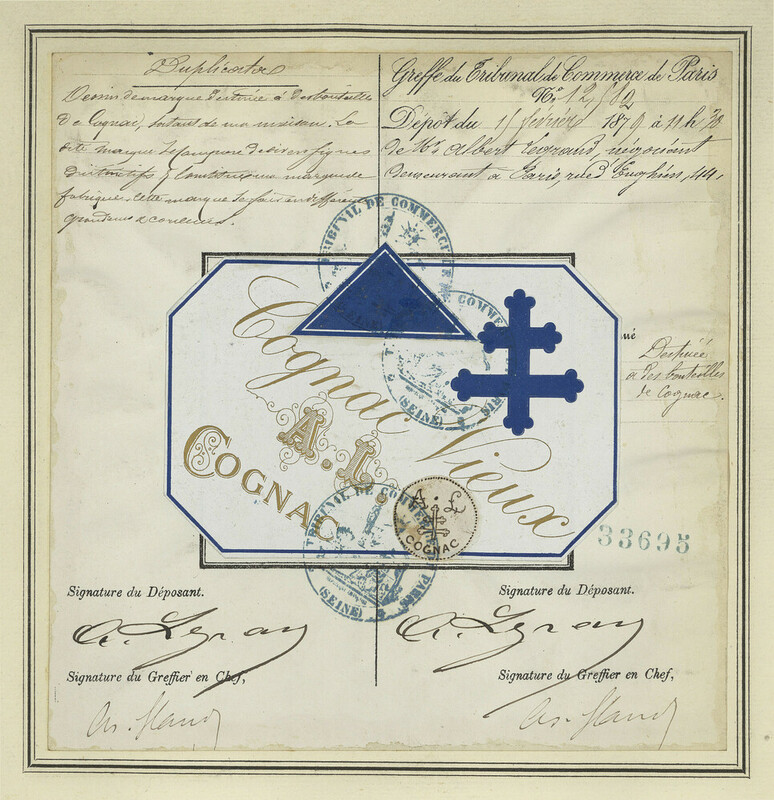 Duplicata
Dessin de marque destinée à des bouteilles
de Cognac, sortant de ma maison. La
dite marque se compose de divers signes
distinctifs, constitue ma marque de
fabrique. Cette marque se fait en différentes
grandeurs & couleurs.
Greffe du Tribunal de Commerce de Paris
N°. 12,182
Dépôt du février 1879 à 11 h, 30
de Mr. Albert Legrand, négociant
demeurant à Paris, rue d'Enghien, 44.
TRIBUNAL DE COMMERCE DE PARIS
(SEINE)
Cognac Vieux
A.L.
COGNAC
A. L.
COGNAC
TRIBUNAL DE COMMERCE DE PARIS
(SEINE)
Destinée
à des bouteilles
de Cognac.
33695
Signature du Déposant.
A. Legrand
Signature du Greffier en Chef,
Signature du Déposant.
A. Legrand
Signature du Greffier en Chef,